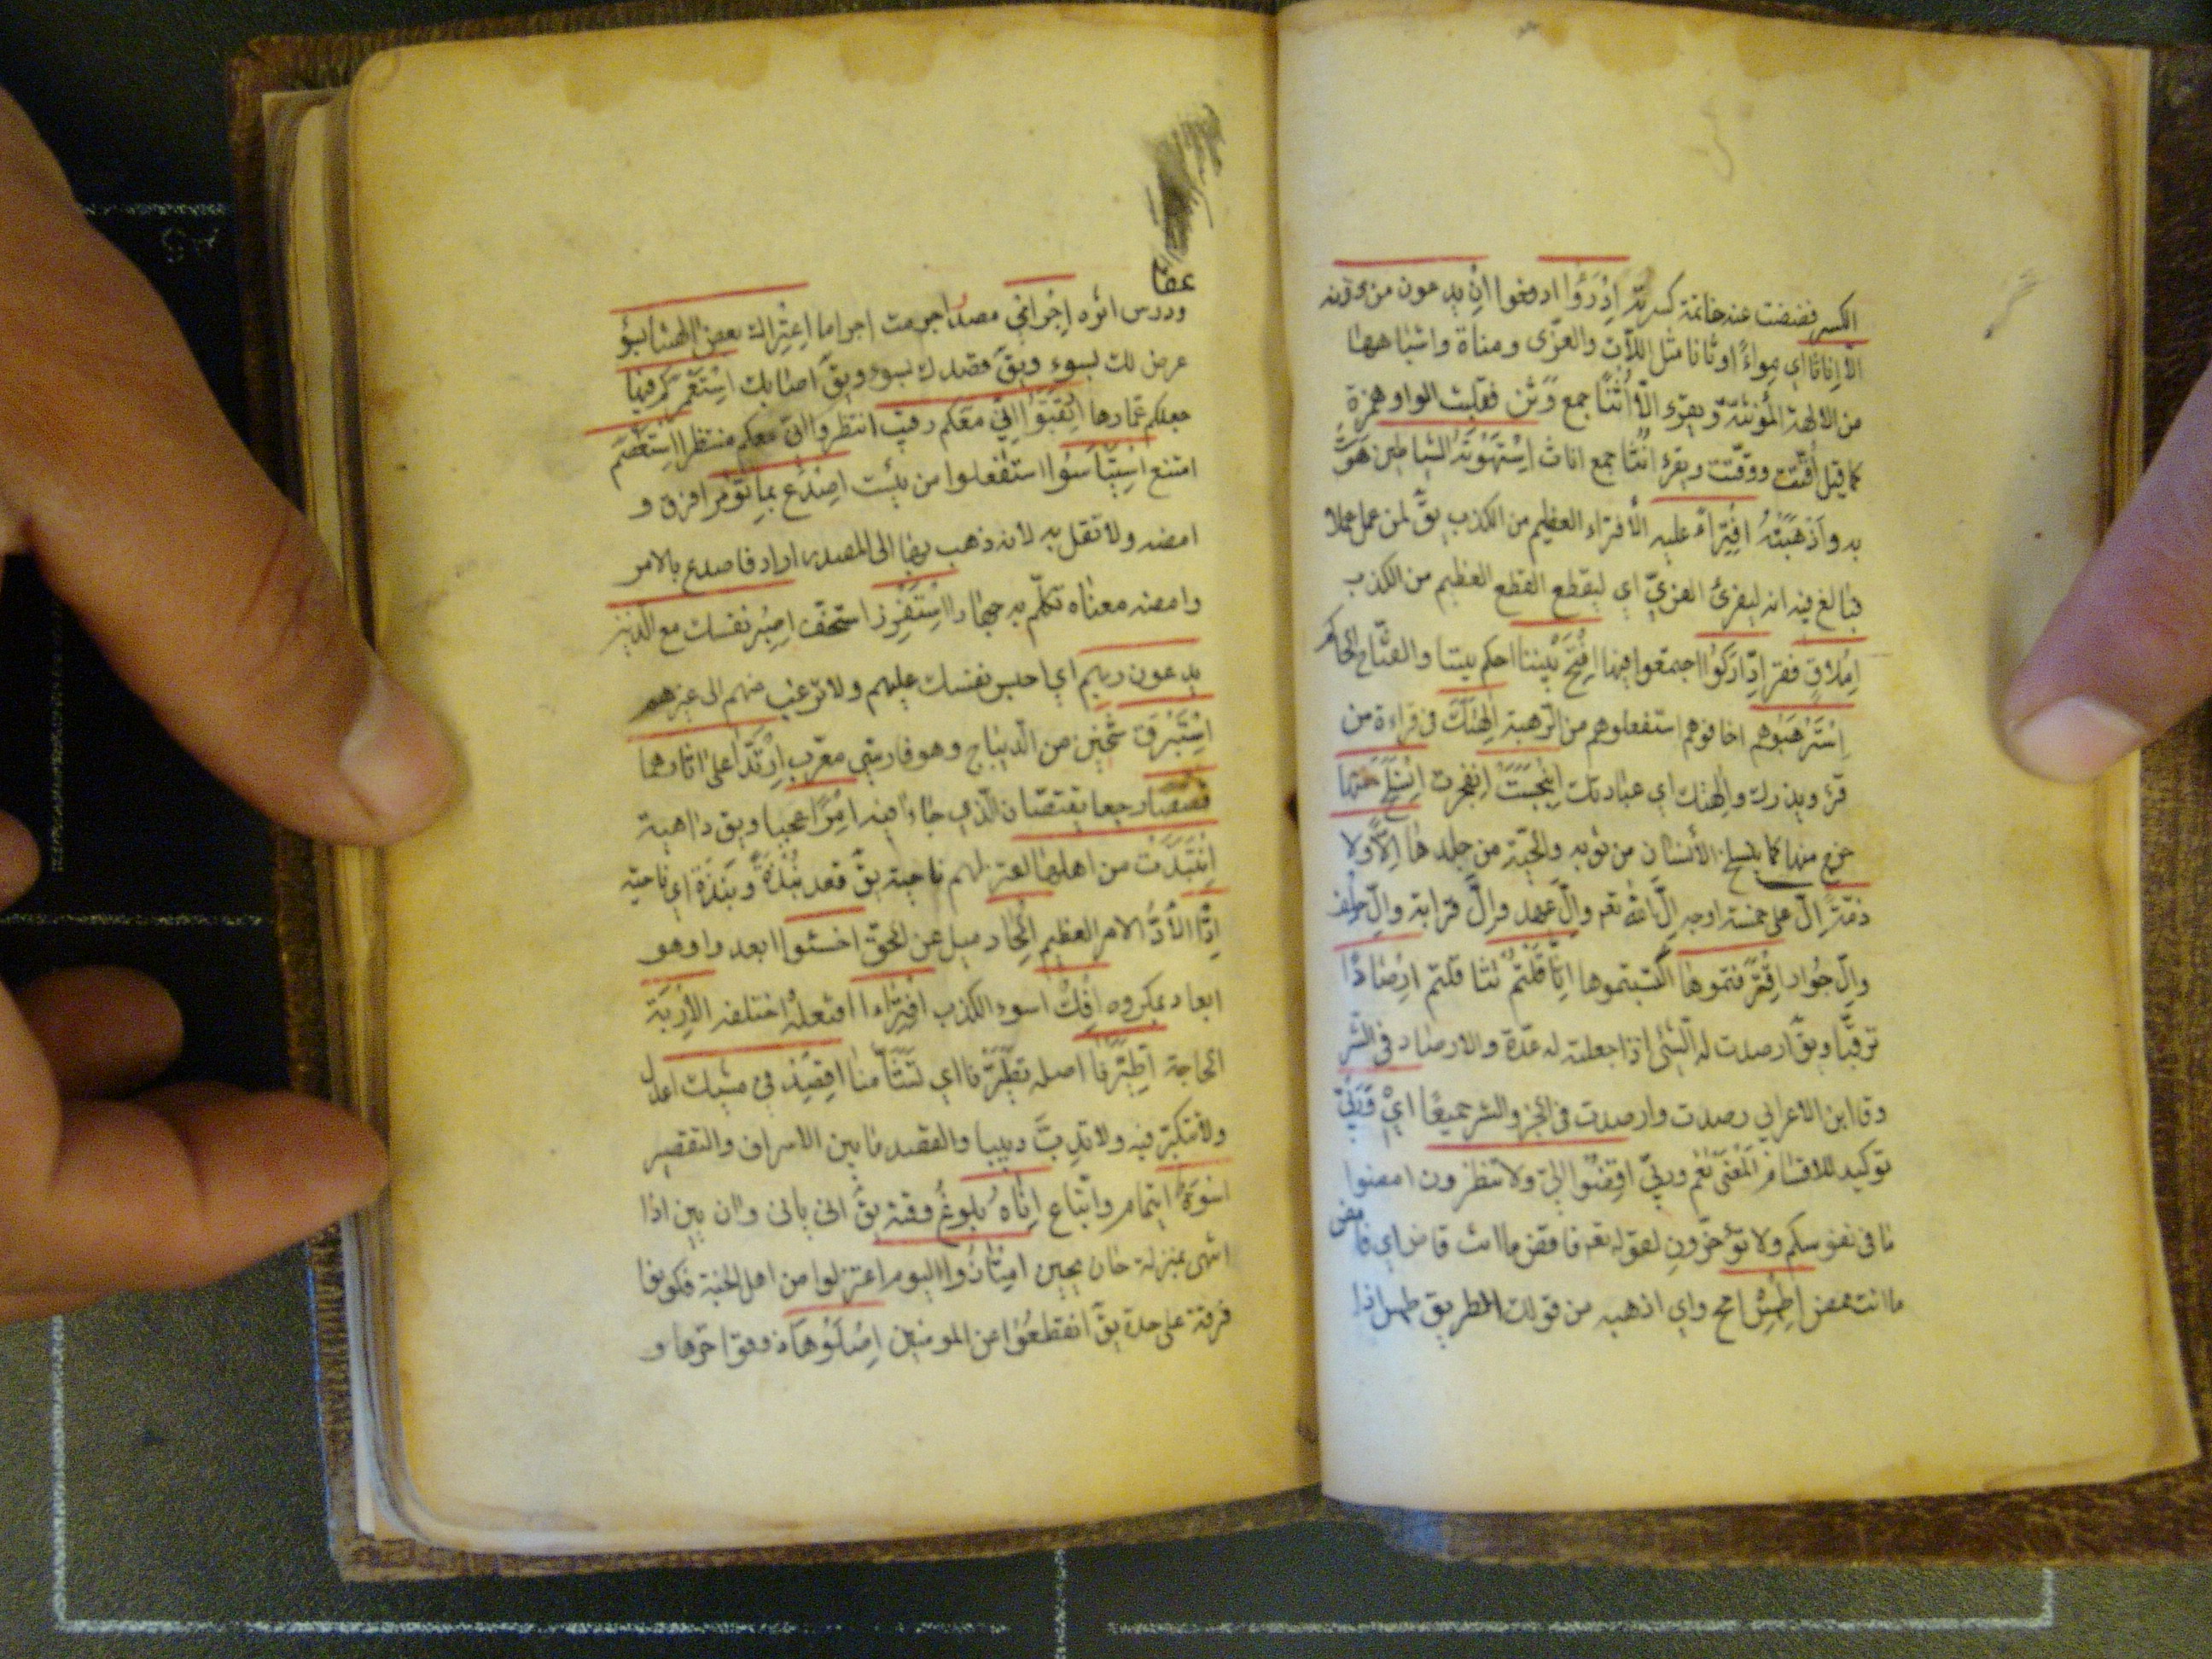 الكسر فضضت عنه خاتمة كسرته اِدْرَؤُا ادفعوا اِنْ يدعون من دونه
الا اِناثا اي مواءً اوثانا مثل اللّات والعزّى ومناة واشباهها
من الالهة المؤنثة ويقرء الّا اُثُنًا جمع وَثَن فقلبت الواو همزة
كما قيل اُقّتت ووقّتت ويقرء اُنُثا جمع اناث اِسْتَهْوَتْهُ الشياطين هَوَتْ
به واَذْهَبَتْهُ افِتِراءً عليه الأفتراء العظيم من الكذب يقّ لمن عمل عملا
فبالغ فيه انه ليفرئ الفريّ اي ليقطع القطع العظيم من الكذب
اِمْلاقٍ فقر اِدّارَكُوا اجتمعوا فيها اِفْتَحْ بَيْننا احكم بيننا والفتّاح الحاكم
اِسْتَرْهَبُوهم اخافوهم استفعلوهم من الرّهبة اِلهتَكَ في قراءة من
قرء ويذرك والهتك اي عبادتك اِنْبَجَسَتْ انفجرت اِنْسَلَخَ منها
خرج منها كما ينسلخ الأنسان من ثوبه والحيّة من جلدها اِلًّا ولا
ذمّة اِلّ على خمسة اوجه اِلّ الله تعم واِلّ عهد واِلّ قرابة واِلّ حلف
واِلّ جُوار اِقْتَرَفتموها اكتسبتموها اِثّاقَلْتُمْ تثاقلتم اِرْصادًا
ترقّبًا ويقّ ارصدت له الشئ اذا جعلته له عدّة والارصاد في الشّر
وقا ابن الاعرابي رصدت وارصدت في الخير والشر جميعًا اِيْ وَرَبّيْ
توكيد للاقسام المعنى نعم وربّي اقْضُوا اليّ ولا تنظرون امضوا
ما في نفوسكم ولا تؤخّرون لقوله تعم فاقض ما انت قاض اي فامض
ما انت ممض اِطْمِسْ امح واي اذهبه من قولك الطريق طمس اذا
عفا
ودرس اثره اِجْرامي مصدر اجرمت اجراما اِعْتَراك بعض الهتنا بسوء
عرض لك بسوء ويقّ قصدك بسوء ويقّ اصابك اِسْتَعْمَرَكم فيها
جعلكم عمّارها اِرْتَقِبُوا اِنّي معكم رقيب انتظروا انّي معكم منتظر اِسْتَعْصَمَ
امتنع اِسْتَيْأَسُوا استفعلوا من يئست اِصْدَعْ بما تؤمر افرق و
امضه ولا تقل به لانه ذهب بها الى المصدر اراد فاصدع بالامر
وامضه معناه تكلّم به جهارا اِسْتَفْزِز استخفّ اِصْبِر نفسك مع الّذين
يدعون ربهم اي احبس نفسك عليهم ولا ترغب عنهم الى غيرهم
اِسْتَبْرَق ثخين من الدّيباج وهو فارسي معرّب اِرْتَدّا على اثارهما
قصصًا رجعا يقتصّان الّذي جاءا فيه اِمْرًا عجيبا ويق داهية
اِنْتَبَذَتْ من اهلها اعتزلهم ناحية يقّ قعد نُبْذَةً ونَبْذَة اي ناحية
اِدًّا الأدُّ الامر العظيم اِلْحاد ميل عن الحقّ اخسئوا ابعدوا وهو
ابعاد بمكروه اِفْكٌ اسوء الكذب اِفْتِراء افتعله اختلقه الأرْبَة
الحاجة اِطَّيَّرْنا اصله تطيّرنا اي تشأّمنا اِقْصِدْ في مشيك اعدل
ولا تتكبّر فيه ولا تدبّ دبيبا والقصد ما بين الاسراف والتقصير
اسْوَة ايتمام واتّباع اِناهُ بلوغ وقته يقّ انى يانى وان يئين اذا
انتهى بمنزلة حان يحين امتازوا اليوم اعتزلوا من اهل الجنة فكونوا
فرقة على حدة يقّ انقطعوا عن المومنين اِصْلَوْها ذوقوا حرّها و